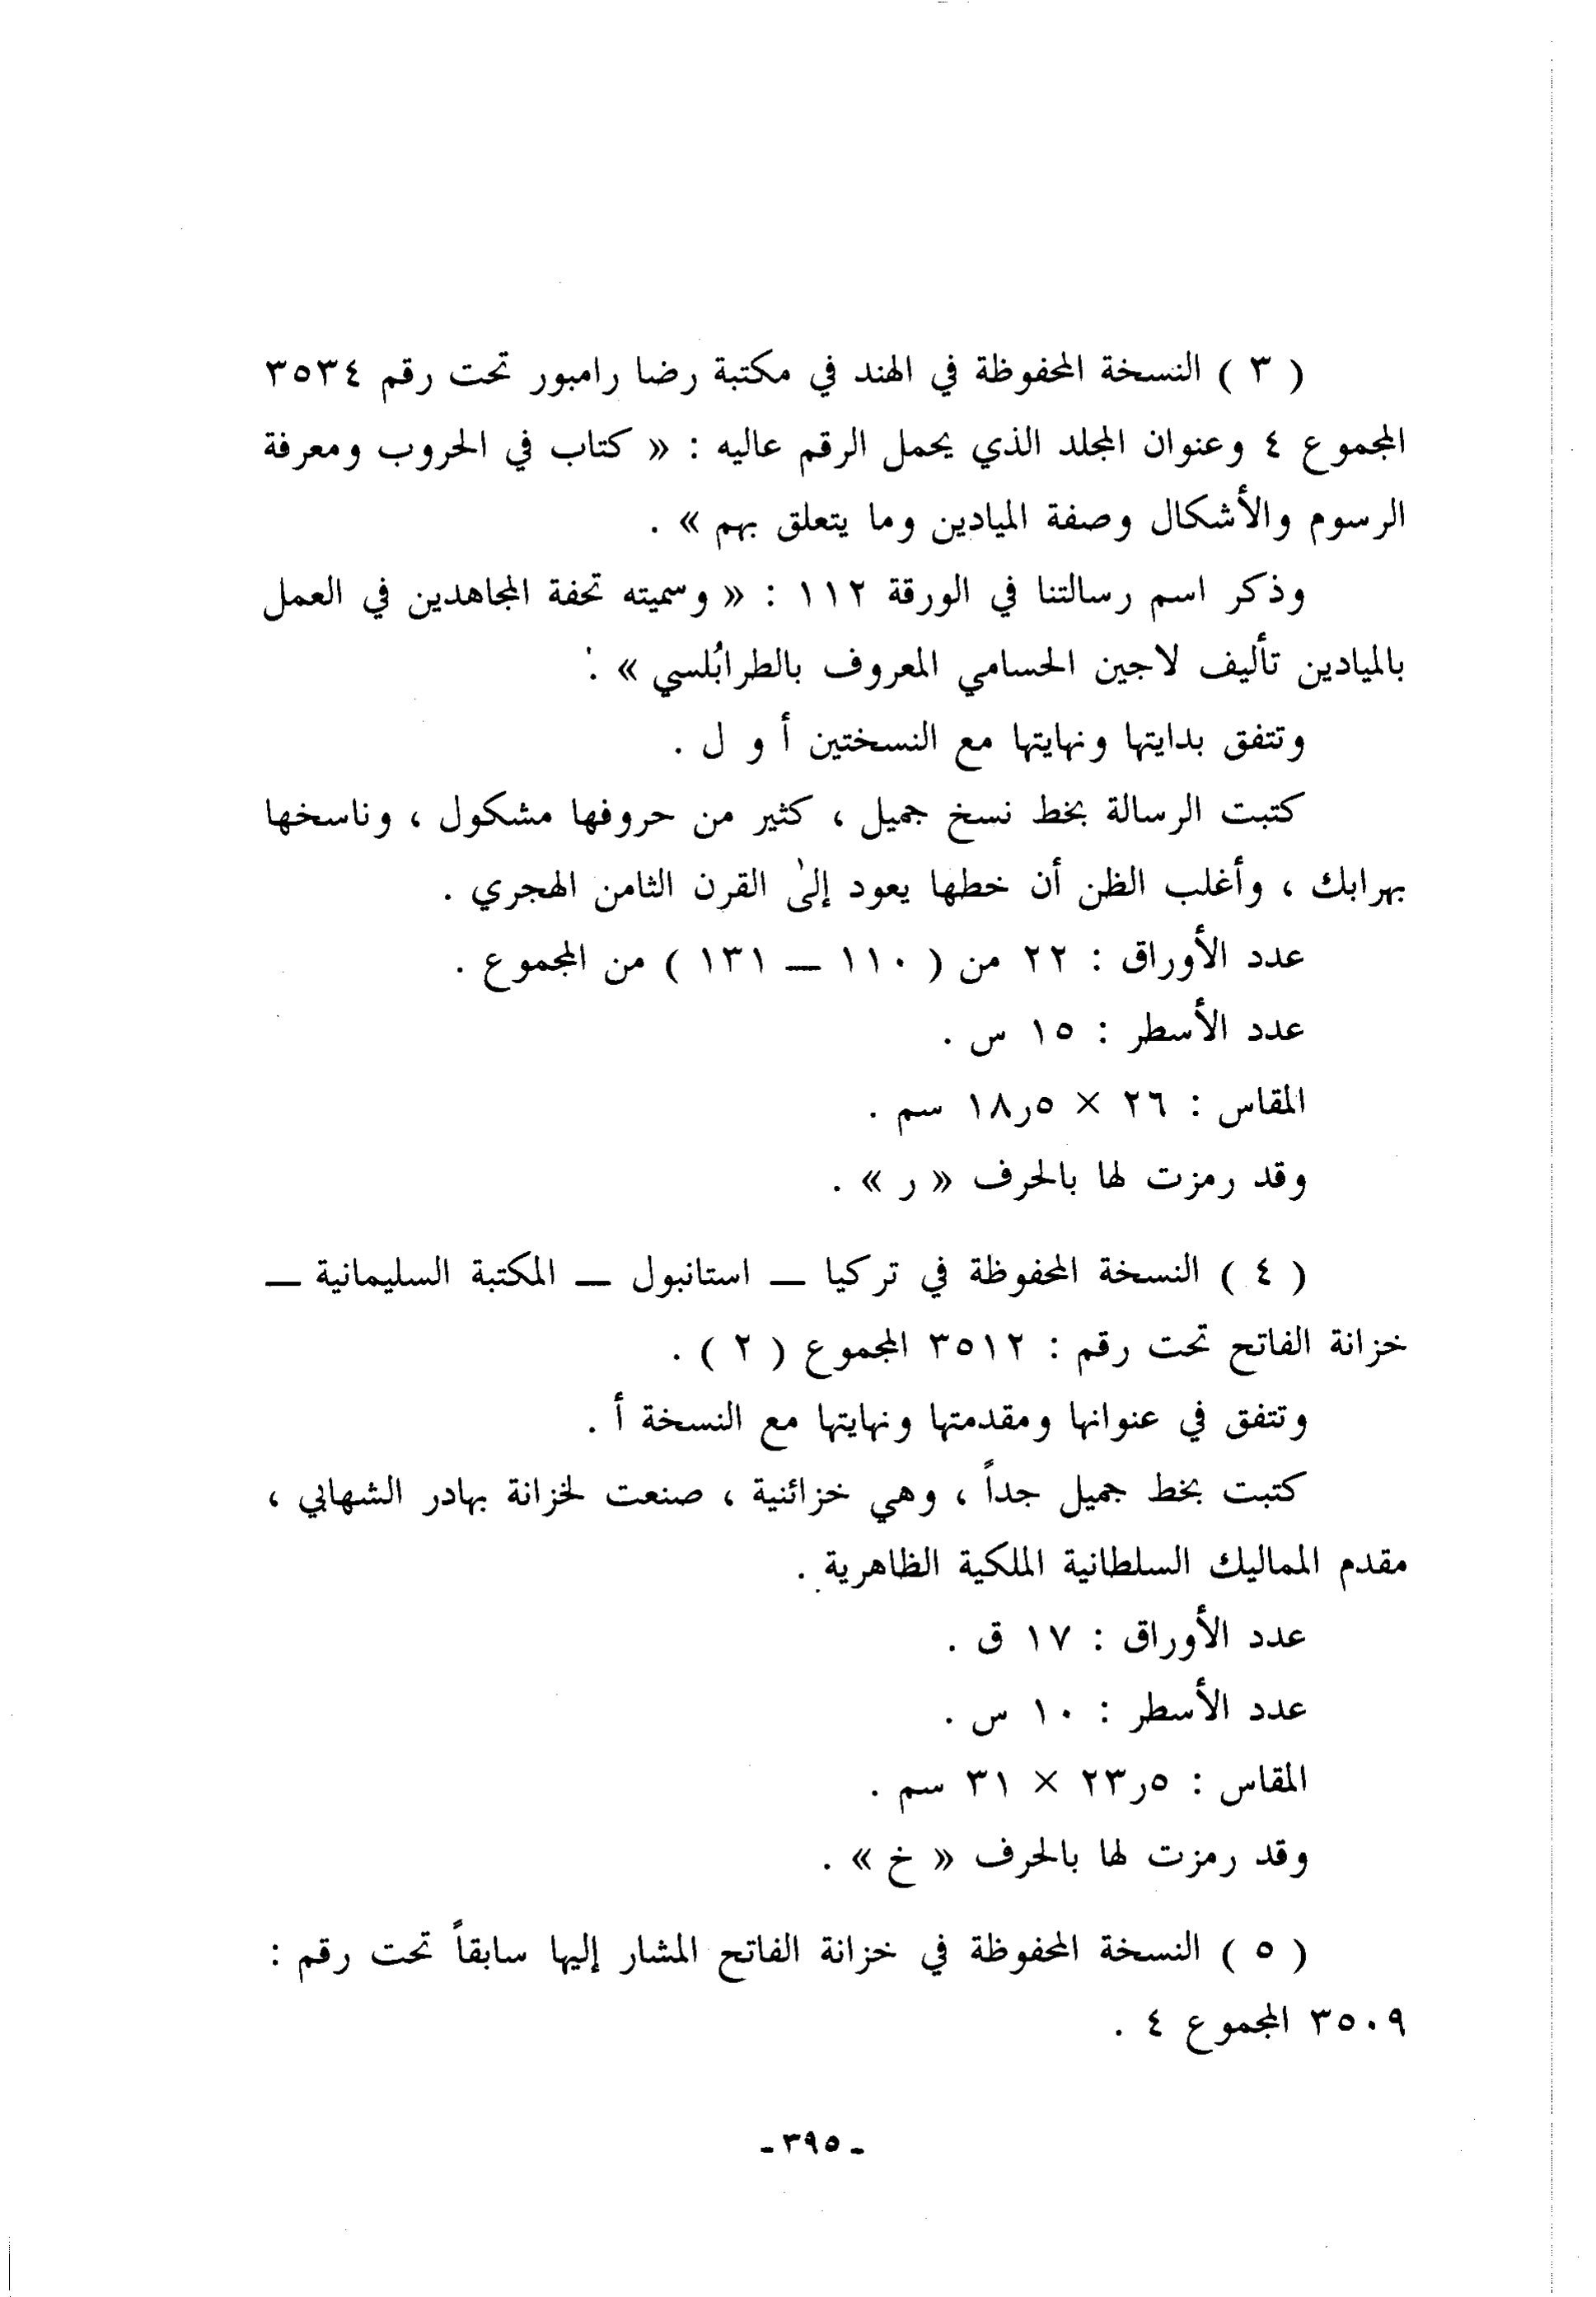 ( ٣ ) النسخة المحفوظة في الهند في مكتبة رضا رامبور تحت رقم ٣٥٣٤
المجموع ٤ وعنوان المجلد الذي يحمل الرقم عاليه : « كتاب في الحروب ومعرفة
الرسوم والأشكال وصفة الميادين وما يتعلق بهم » .
وذكر اسم رسالتنا في الورقة ١١٢ : « وسميته تحفة المجاهدين في العمل
بالميادين تأليف لاجين الحسامي المعروف بالطرابُلسي » .
وتتفق بدايتها ونهايتها مع النسختين أ و ل .
كتبت الرسالة بخط نسخ جميل ، كثير من حروفها مشكول ، وناسخها
بهرابك ، وأغلب الظن أن خطها يعود إلىٰ القرن الثامن الهجري .
عدد الأوراق : ٢٢ من ( ١١٠ — ١٣١ ) من المجموع .
عدد الأسطر : ١٥ س .
المقاس : ٢٦ × ٥ر١٨ سم .
وقد رمزت لها بالحرف « ر » .
( ٤ ) النسخة المحفوظة في تركيا — استانبول — المكتبة السليمانية —
خزانة الفاتح تحت رقم : ٣٥١٢ المجموع ( ٢ ) .
وتتفق في عنوانها ومقدمتها ونهايتها مع النسخة أ .
كتبت بخط جميل جداً ، وهي خزائنية ، صنعت لخزانة بهادر الشهابي ،
مقدم المماليك السلطانية الملكية الظاهرية .
عدد الأوراق : ١٧ ق .
عدد الأسطر : ١٠ س .
المقاس : ٥ر٢٣ × ٣١ سم .
وقد رمزت لها بالحرف « خ » .
( ٥ ) النسخة المحفوظة في خزانة الفاتح المشار إليها سابقاً تحت رقم :
٣٥٠٩ المجموع ٤ .
- ٣٩٥ -